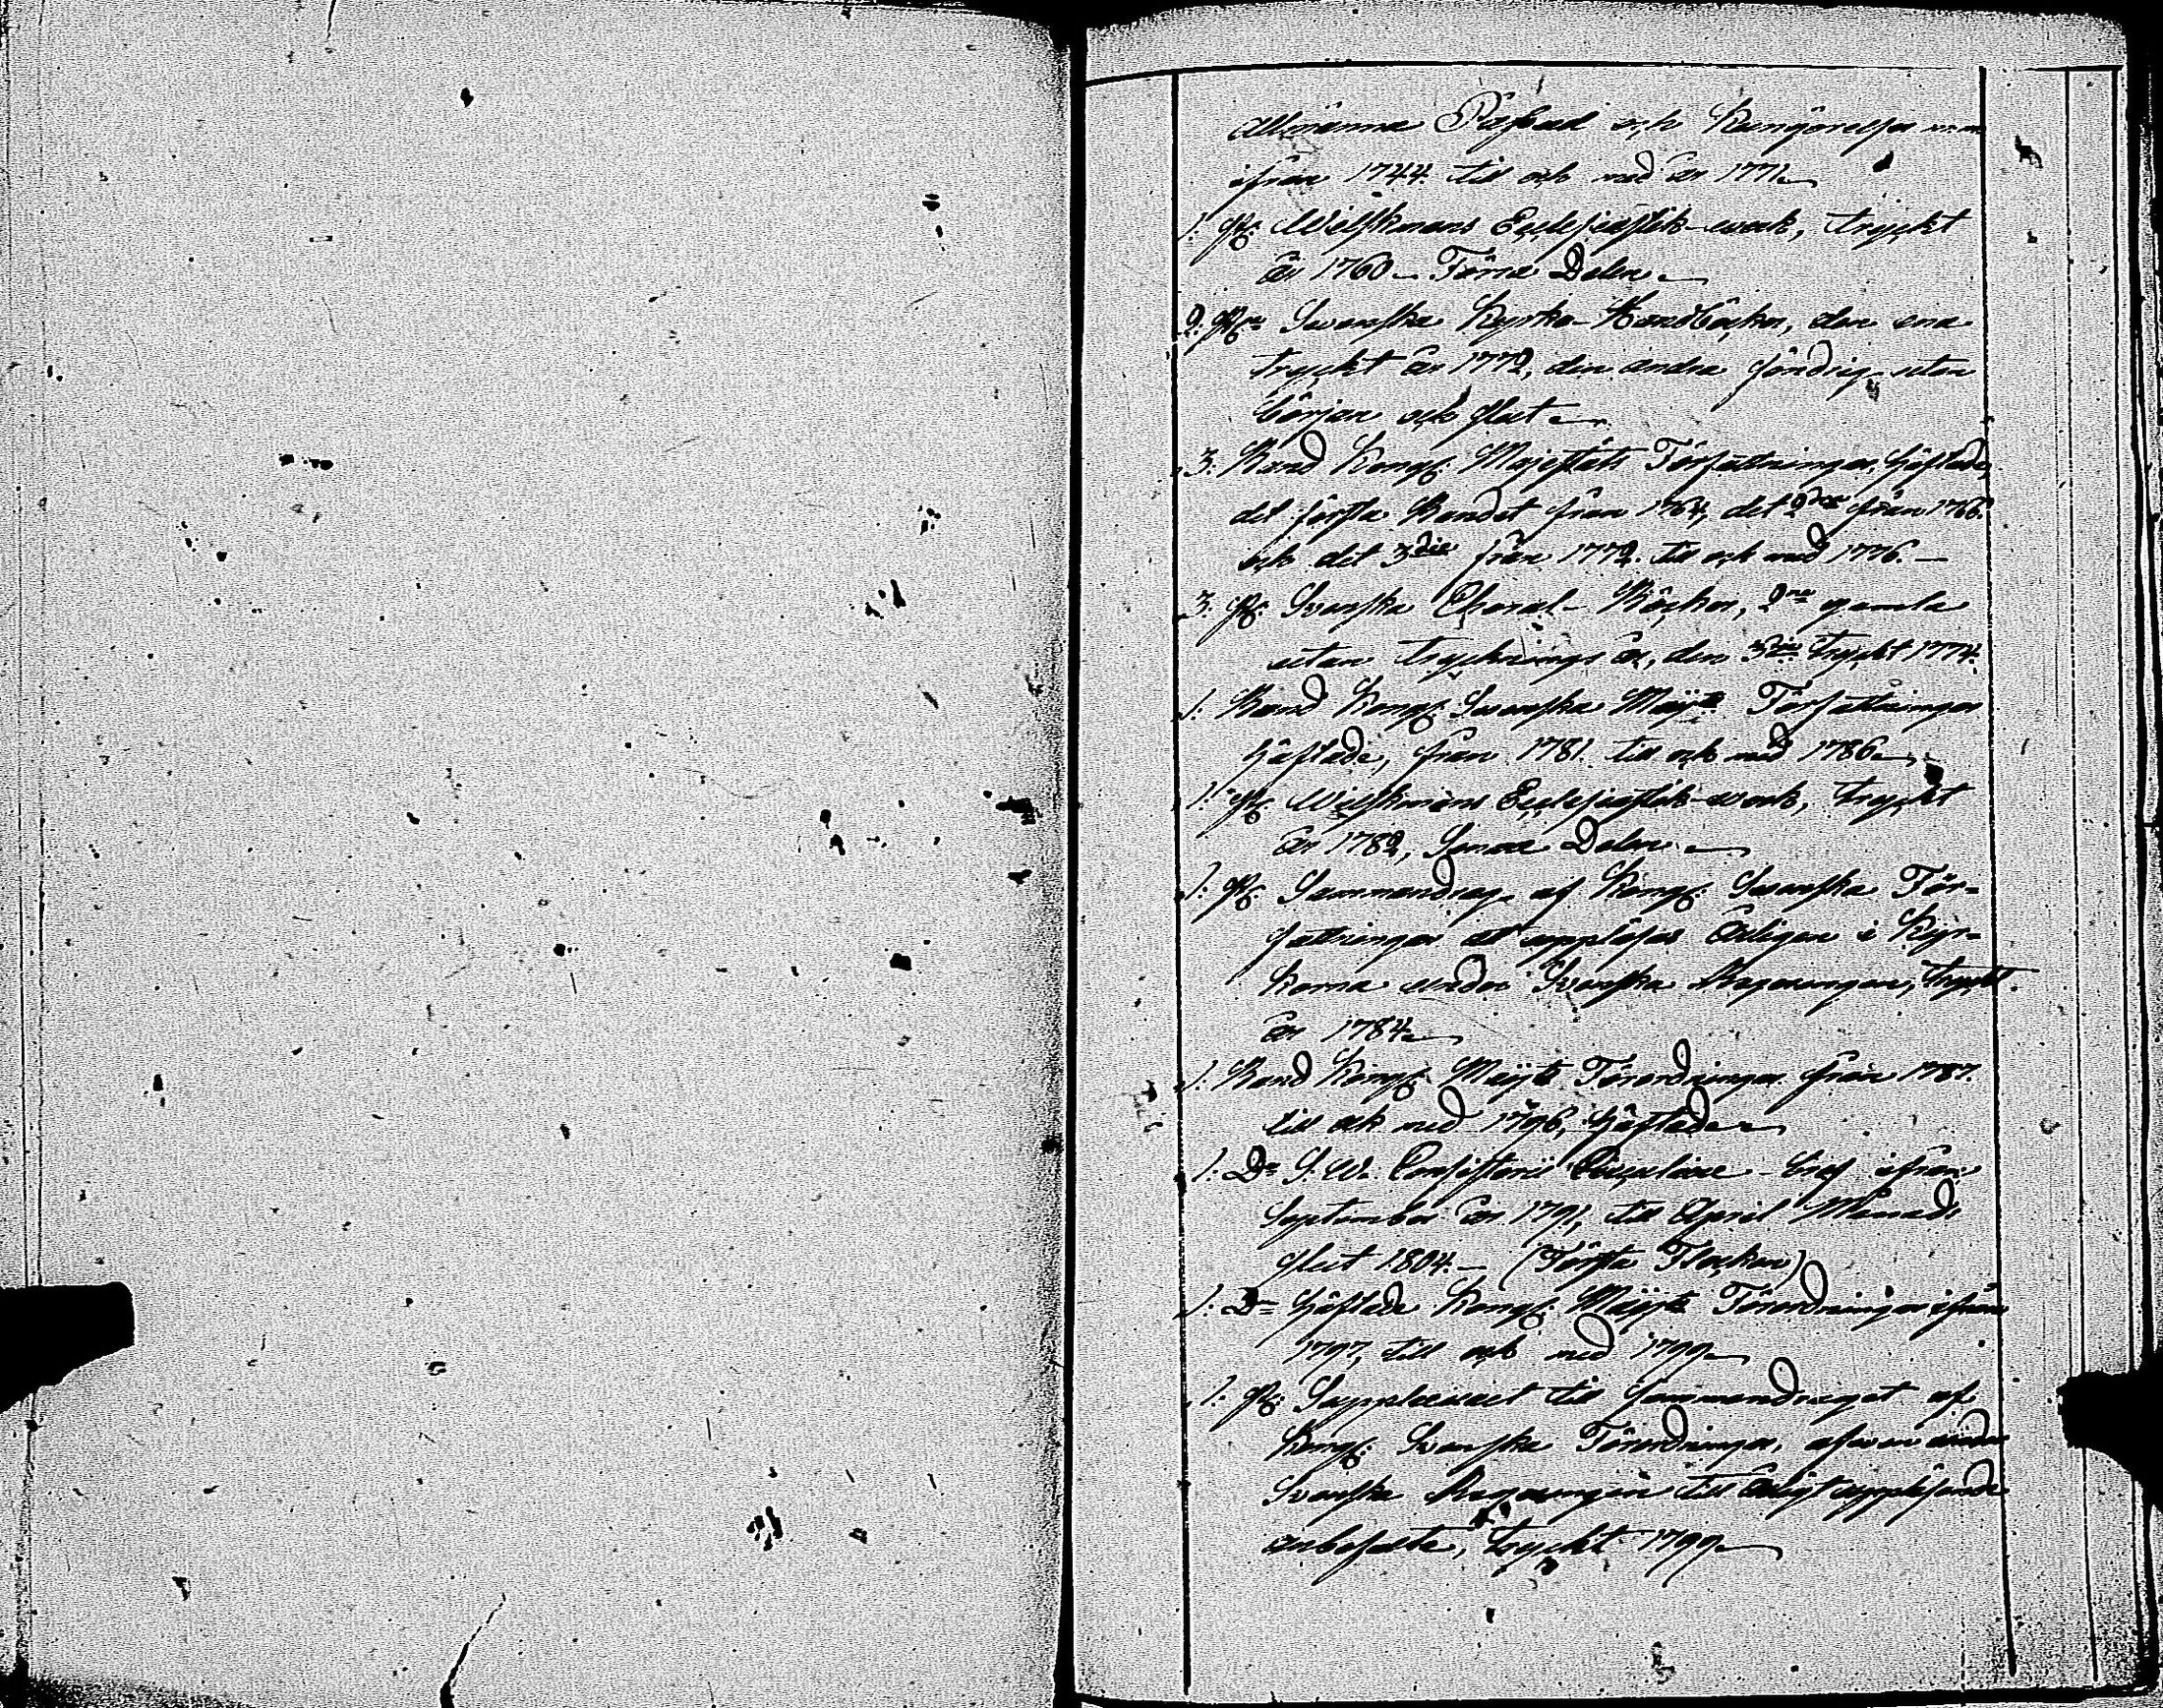 allmänna Påbud och Kungörelser m m
ifrån 1744. till och med år 1771.
1. St: Wilskmans Ecclesiastik-werk, tryckt
år 1760. Förra Delen.
2. St:n Swenska Kyrko-Handböcker, den ena
tryckt år 1772, den andra söndrig utan
början och slut.
3. Band Kongl: Majestäts Författningar, häftade,
det första Bandet från 1764, det 2dra från 1766.
och det 3die från 1772. till och med 1776. —
3. St: Svenska Choral-Böcker, 2ne gamla
utan tryknings år, den 3die tryckt 1774.
1. Band Kongl: Swenska Maj:ts Författningar
häftade, från 1781. till och med 1786.
1. St: Wilskmans Ecclesiastik-werk, tryckt
år 1782, Senare Delen.
1. St: Sammandrag af Kongl: Swenska För-
fattningar at uppläsas Årligen i Kyr-
korna under Svenska Regeringen, tryckt.
år 1784.
1. Band Kongl: Maj:ts Förordningar från 1787.
till och med 1796, häftade.
1. D:o Consistorii Circulaire-bref ifrån
September år 1791, till April Månads
slut 1804. — (Första Flocken)
1. D:o häftade Kongl: Maj:ts Förordningar ifrån
1797, till och med 1799.
1. St: Supplement till Sammandraget af
Kongl: Svenska Förordningar, under
Svenska Regeringen till Årligt uppläsande
anbefalte, tryckt 1799.